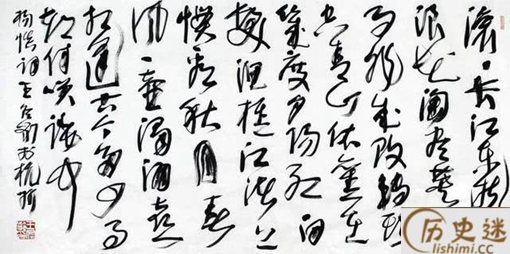 滚滚长江东逝水
浪花淘尽英雄
是非成败转头
空青山依旧在
几度夕阳红白
发渔樵江渚上
惯看秋月春
风一壶浊酒喜
相逢古今多少事
都付笑谈中
杨慎词王冬龄书
历史迷
lishimi.cc